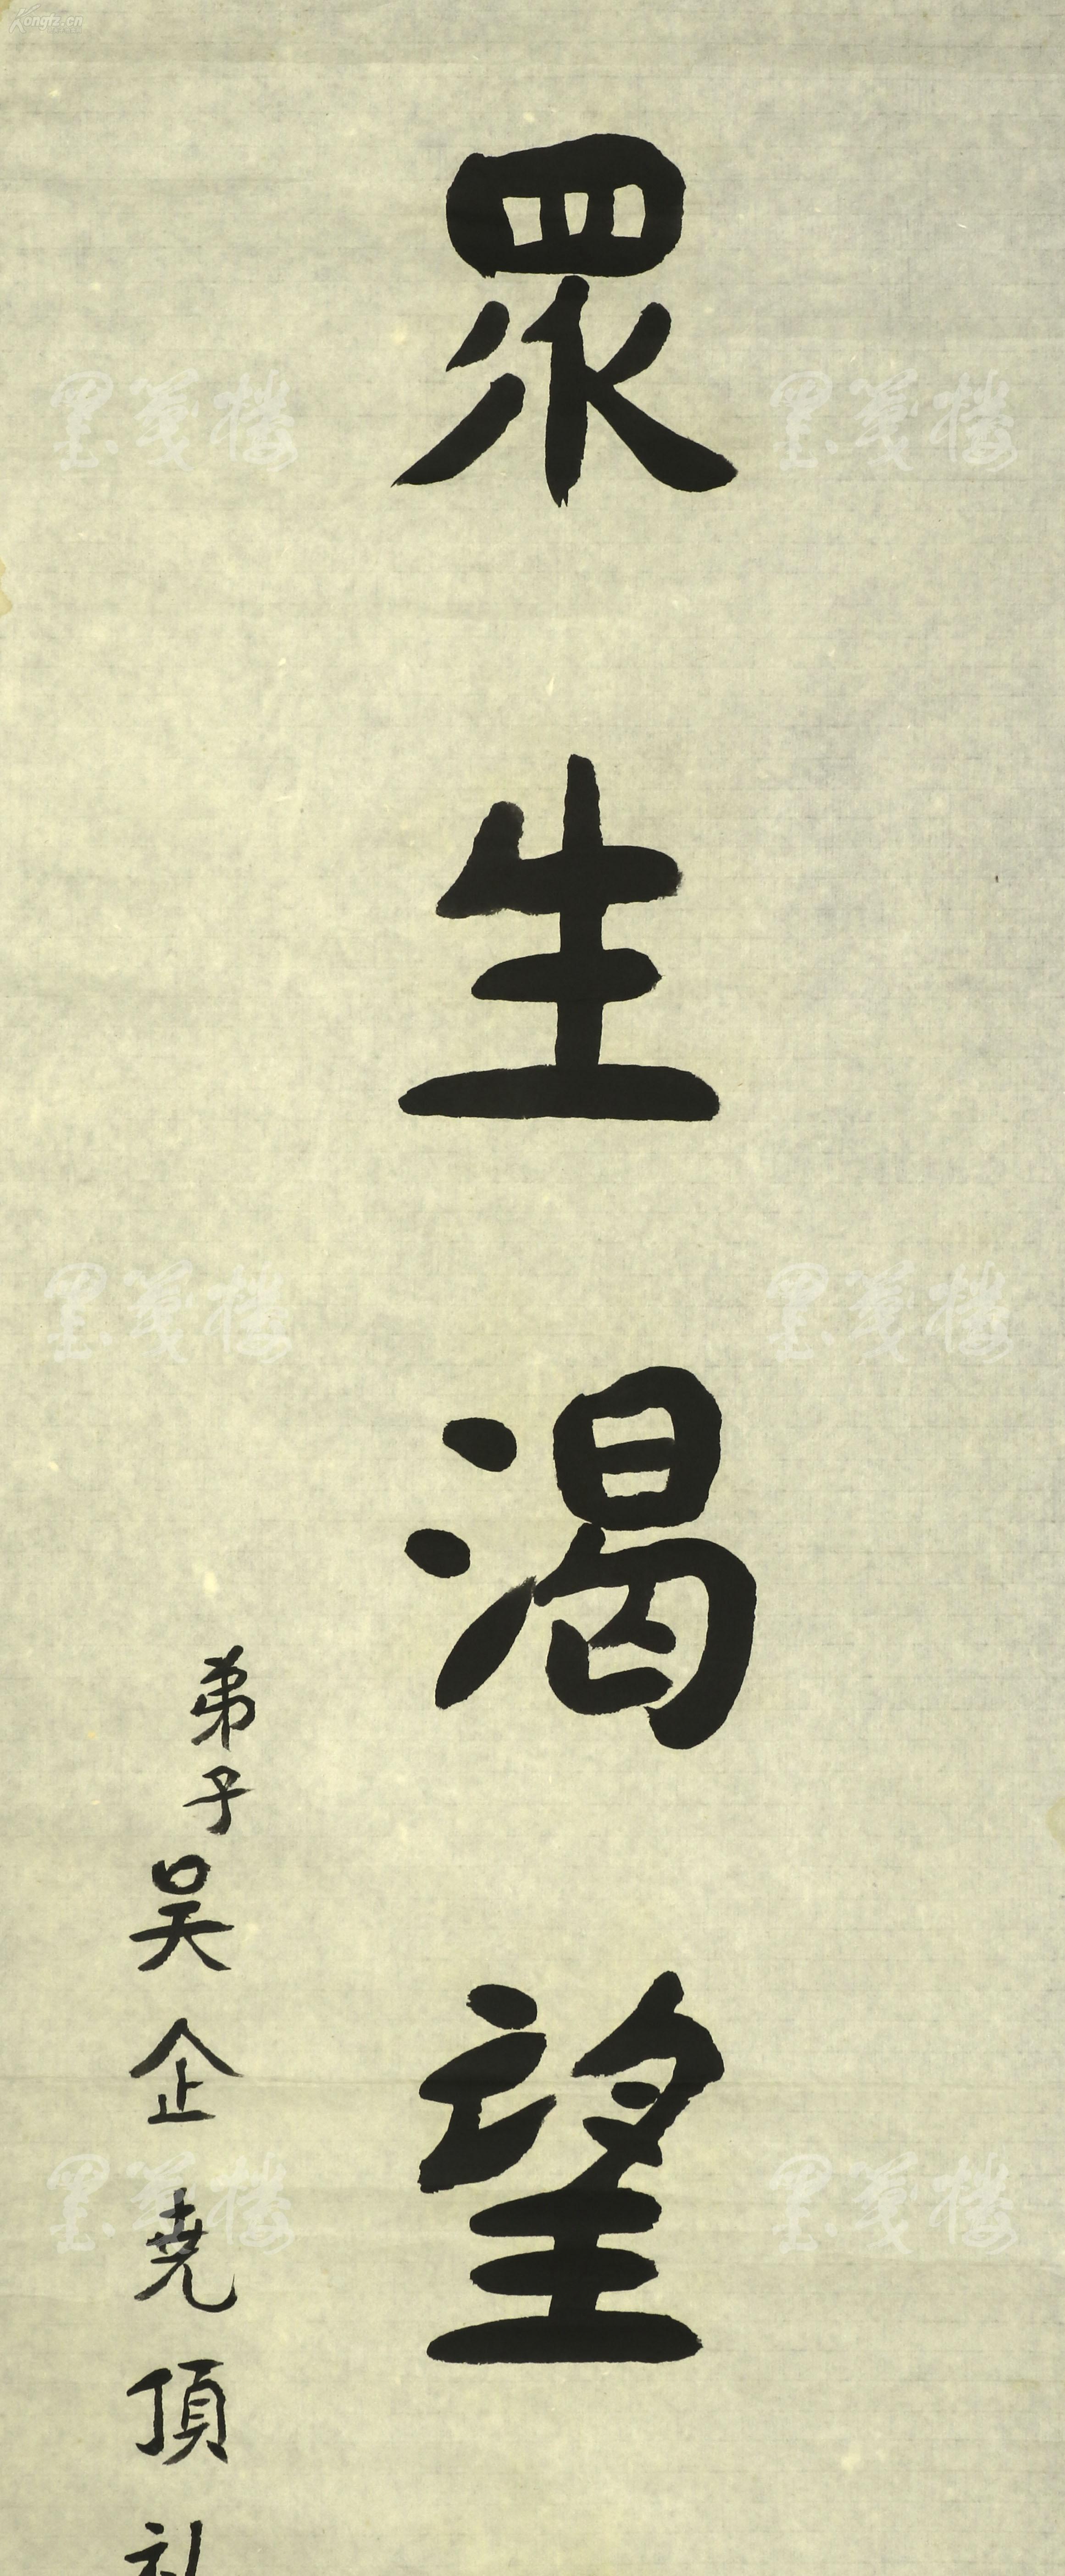 眾生渴望
弟子吴企堯頂礼
Kongfz.cn
墨笺楼
墨笺楼
墨笺楼
墨笺楼
墨笺楼
墨笺楼